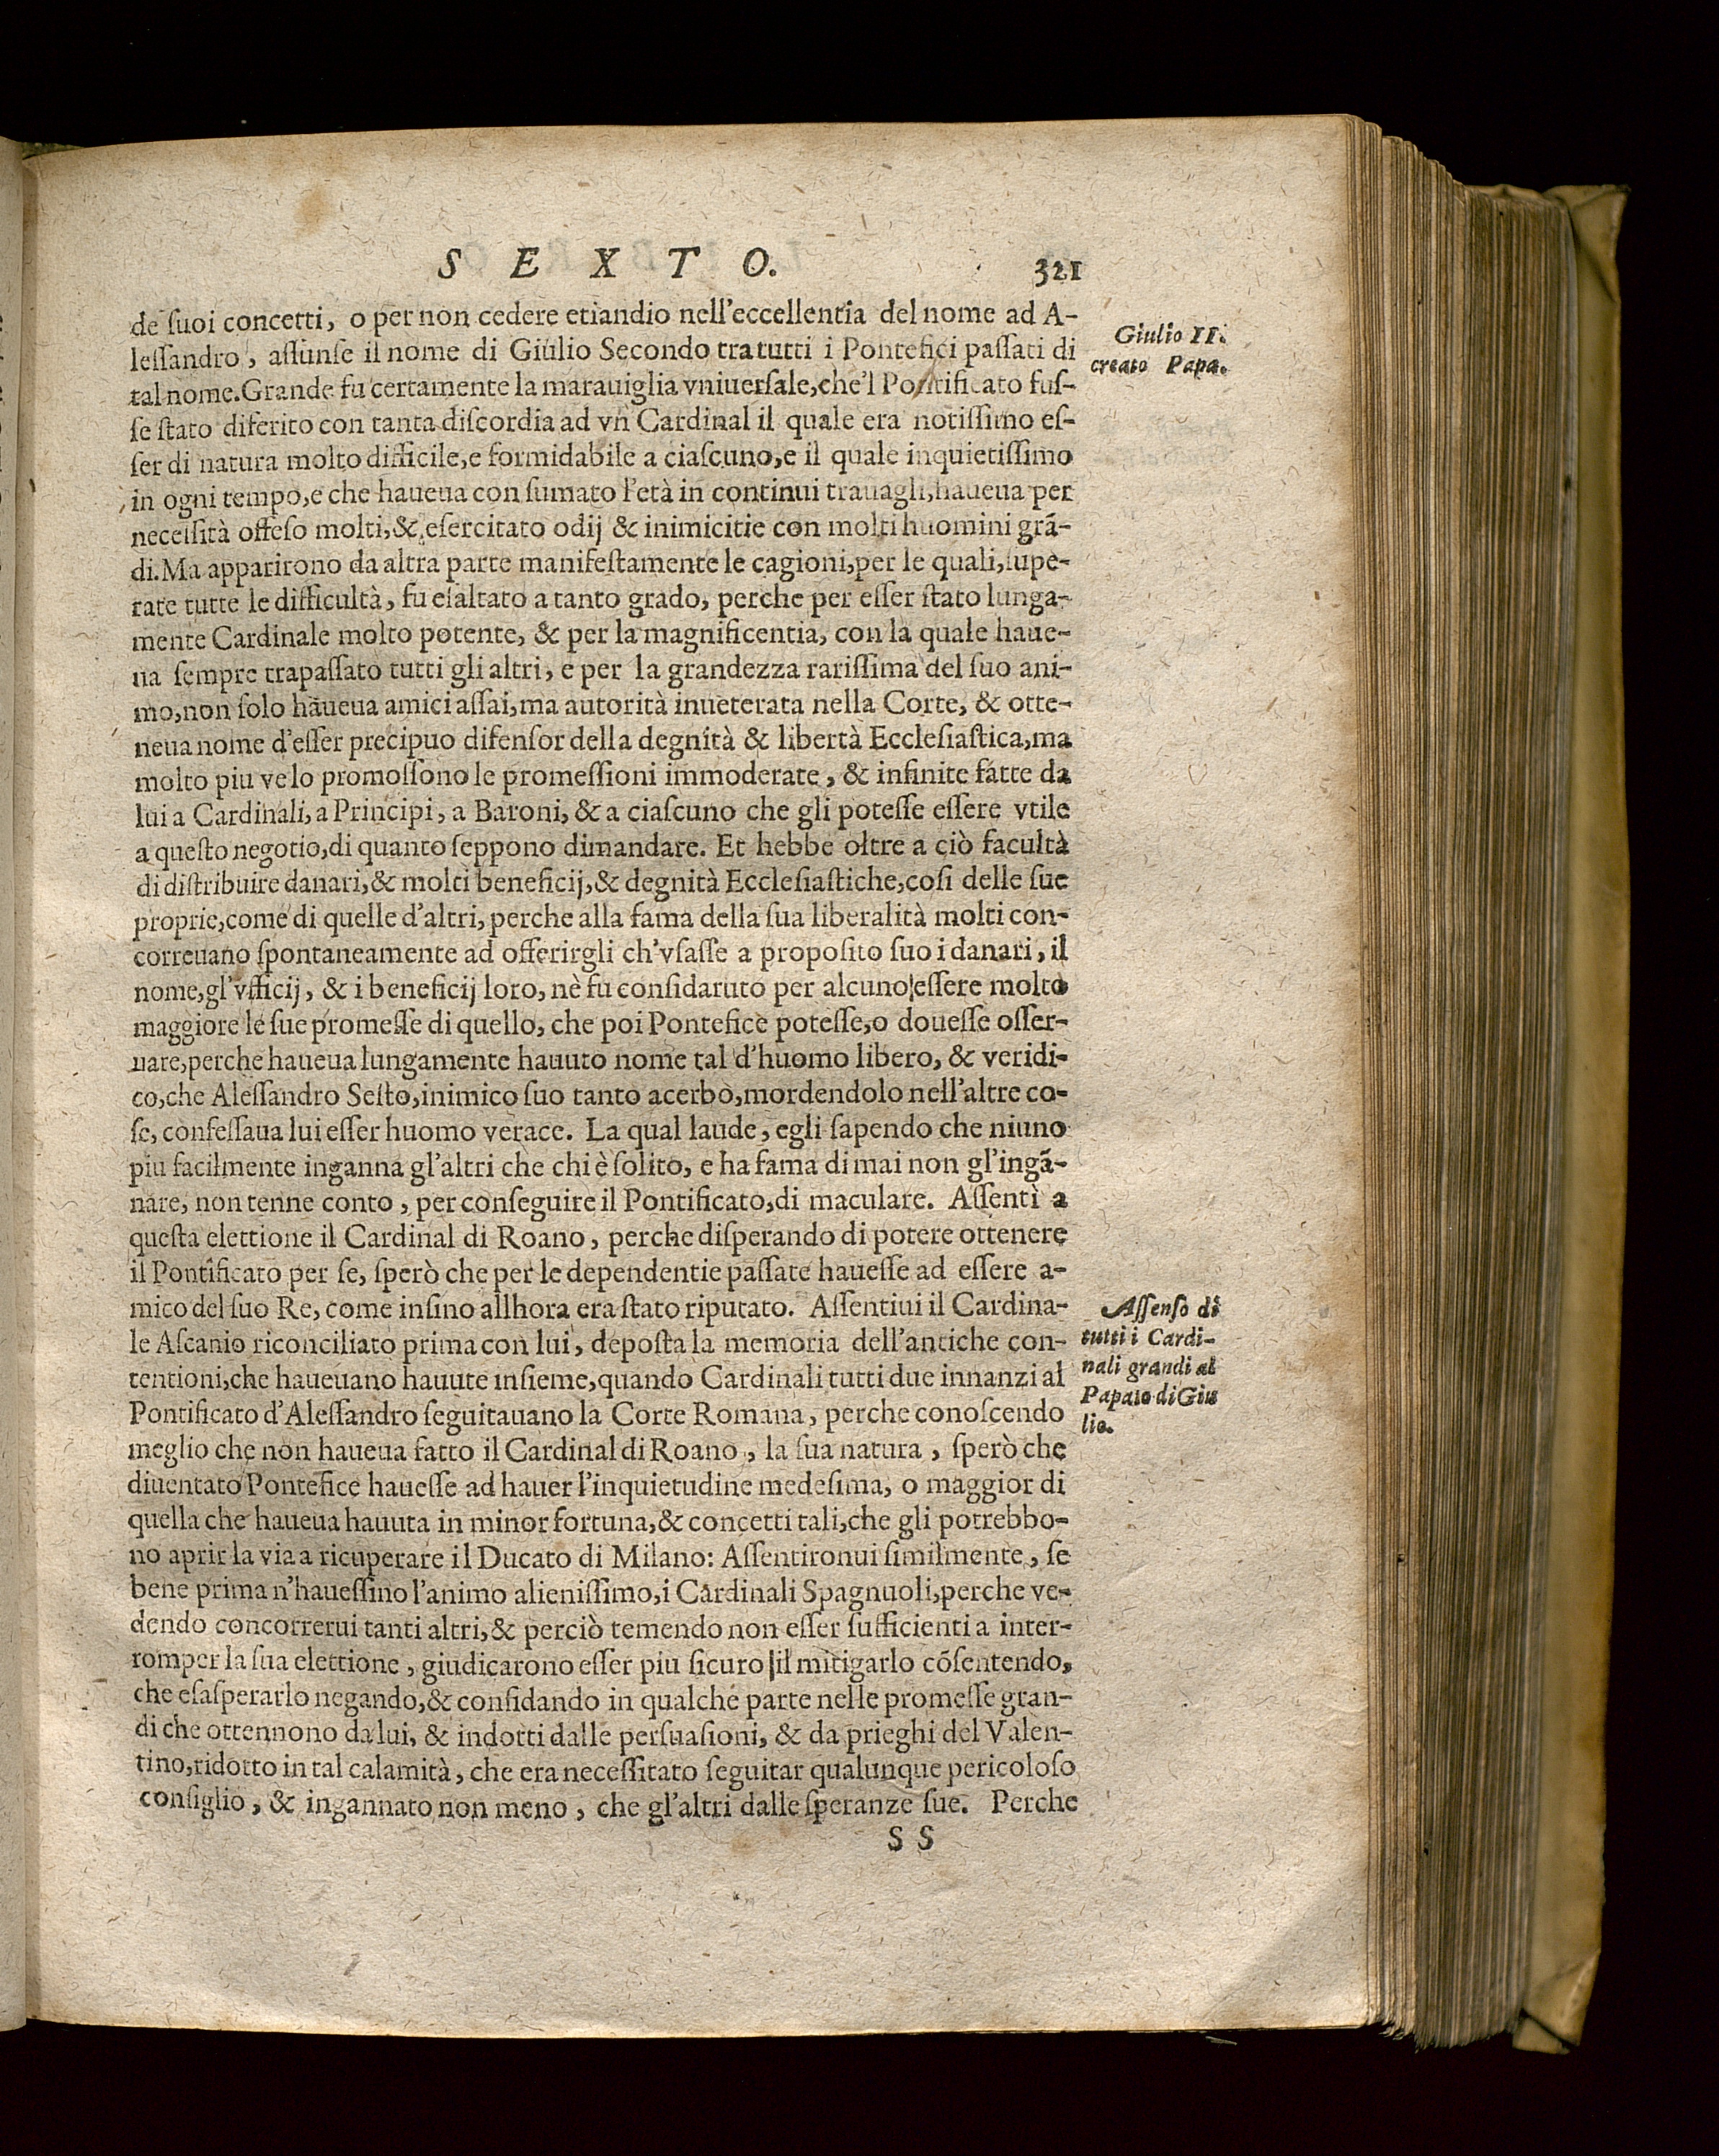 S E X T O. 321
de ſuoi concetti, o per non cedere etiandio nell'eccellentia del nome ad A-
leſſandro, aſſunſe il nome di Giulio Secondo tra tutti i Pontefici paſſati di
tal nome. Grande fu certamente la marauiglia vniuerſale, che'l Pontificato fuſ-
ſe ſtato diferito con tanta diſcordia ad vn Cardinal il quale era notiſſimo eſ-
ſer di natura molto difficile, e formidabile a ciaſcuno, e il quale inquietiſſimo
in ogni tempo, e che haueua con ſumato l'età in continui trauagli, haueua per
neceſſità offeſo molti, & eſercitato odij & inimicitie con molti huomini grã-
di. Ma apparirono da altra parte manifeſtamente le cagioni, per le quali, ſupe-
rate tutte le difficultà, fu eſaltato a tanto grado, perche per eſſer ſtato lunga-
mente Cardinale molto potente, & per la magnificentia, con la quale haue-
ua ſempre trapaſſato tutti gli altri, e per la grandezza rariſſima del ſuo ani-
mo, non ſolo haueua amici aſſai, ma autorità inueterata nella Corte, & otte-
neua nome d'eſſer precipuo difenſor della degnità & libertà Eccleſiaſtica, ma
molto piu ve lo promoſſono le promeſſioni immoderate, & infinite fatte da
lui a Cardinali, a Principi, a Baroni, & a ciaſcuno che gli poteſſe eſſere vtile
a queſto negotio, di quanto ſeppono dimandare. Et hebbe oltre a ciò facultà
di diſtribuire danari, & molti beneficij, & degnità Eccleſiaſtiche, coſi delle ſue
proprie, come di quelle d'altri, perche alla fama della ſua liberalità molti con-
correuano ſpontaneamente ad offerirgli ch'vſaſſe a propoſito ſuo i danari, il
nome, gl'vfficij, & i beneficij loro, nè fu conſidaruto per alcuno eſſere molto
maggiore le ſue promeſſe di quello, che poi Pontefice poteſſe, o doueſſe oſſer-
uare, perche haueua lungamente hauuto nome tal d'huomo libero, & veridi-
co, che Aleſſandro Seſto, inimico ſuo tanto acerbo, mordendolo nell'altre co-
ſe, confeſſaua lui eſſer huomo verace. La qual laude, egli ſapendo che niuno
piu facilmente inganna gl'altri che chi è ſolito, e ha fama di mai non gl'ingã-
nare, non tenne conto, per conſeguire il Pontificato, di maculare. Aſſentì a
queſta elettione il Cardinal di Roano, perche diſperando di potere ottenere
il Pontificato per ſe, ſperò che per le dependentie paſſate haueſſe ad eſſere a-
mico del ſuo Re, come inſino allhora era ſtato riputato. Aſſentiui il Cardina-
le Aſcanio riconciliato prima con lui, depoſta la memoria dell'antiche con-
tentioni, che haueuano hauute inſieme, quando Cardinali tutti due innanzi al
Pontificato d'Aleſſandro ſeguitauano la Corte Romana, perche conoſcendo
meglio che non haueua fatto il Cardinal di Roano, la ſua natura, ſperò che
diuentato Pontefice haueſſe ad hauer l'inquietudine medeſima, o maggior di
quella che haueua hauuta in minor fortuna, & concetti tali, che gli potrebbo-
no aprir la via a ricuperare il Ducato di Milano: Aſſentironui ſimilmente, ſe
bene prima n'haueſſino l'animo alieniſſimo, i Cardinali Spagnuoli, perche ve-
dendo concorrerui tanti altri, & perciò temendo non eſſer ſufficienti a inter-
romper la ſua elettione, giudicarono eſſer piu ſicuro il mitigarlo cõſentendo,
che eſaſperarlo negando, & confidando in qualche parte nelle promeſſe gran-
di che ottennono da lui, & indotti dalle perſuaſioni, & da prieghi del Valen-
tino, ridotto in tal calamità, che era neceſſitato ſeguitar qualunque pericoloſo
conſiglio, & ingannato non meno, che gl'altri dalle ſperanze ſue. Perche
S S
Giulio II.
creato Papa.
Aſſenſo di
tutti i Cardi-
nali grandi al
Papato di Giu
lio.